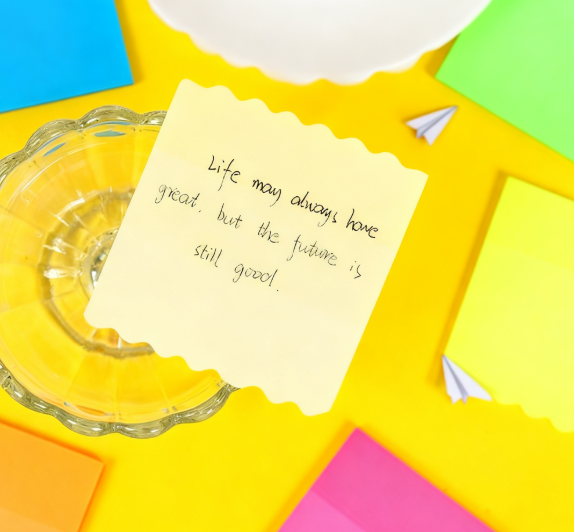 Life may always have
great. but the future is
still good.